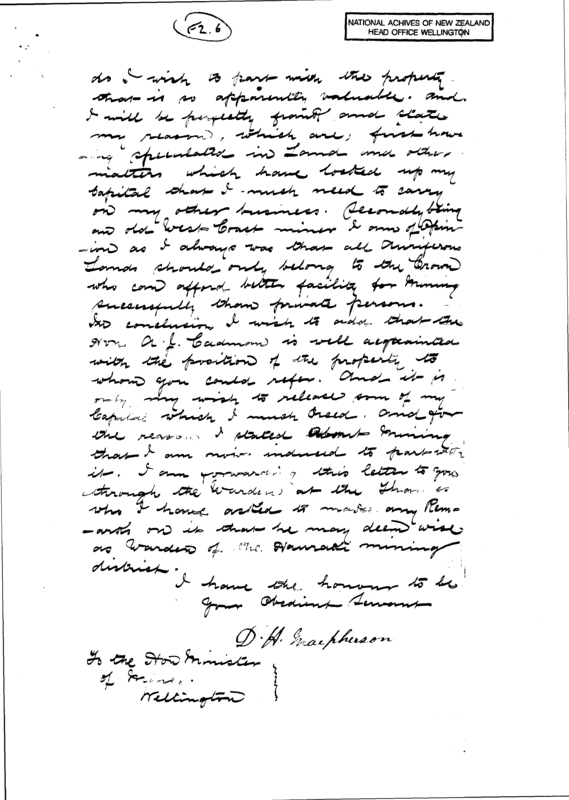 F2.6
NATIONAL ACHIVES OF NEW ZEALAND
HEAD OFFICE WELLINGTON
do I wish to part with the property
that is so apparently valuable. And
I will be perfectly frank and state
my reason, which are, first have
-ing speculated in Land and other
matters which have locked up my
Capital that I much need to carry
on my other business. Secondly being
an old West Coast miner I am of Opin
-ion as I always was that all Auriferous
Lands should only belong to the Crown
who can afford better facility for Mining
successfully than private persons.
In conclusion I wish to add that the
Hon A. J. Cadman is well acquainted
with the position of the property to
whom you could refer. And it is
only my wish to release som of my
Capital which I much need. And for
the reason I stated About Mining
that I am now induced to part with
it. I am forwarding this letter to you
through the Warden at the Thames
who I have asked to make any Rem-
-arks on it that he may deem wise
as Warden of the Hauraki mining
district.
I have the honour to be
Your Obedient Servant
D. H. Macpherson
To the Hon Minister
of Mines
Wellington